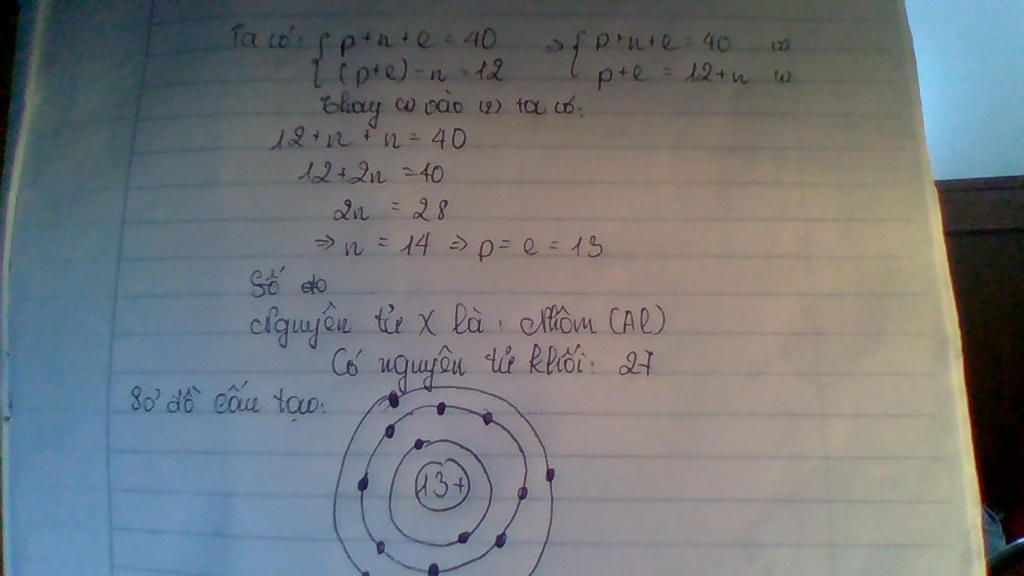 Ta có: { p+n+e = 40 => { p+n+e = 40 (2)
{ (p+e) - n = 12 { p+e = 12+n (1)
Thay (1) vào (2) ta có:
12+n + n = 40
12+2n = 40
2n = 28
=> n = 14 => p = e = 13
Số
Nguyên tử X là: Nhôm (Al)
Có nguyên tử khối: 27
Sơ đồ cấu tạo:
13+